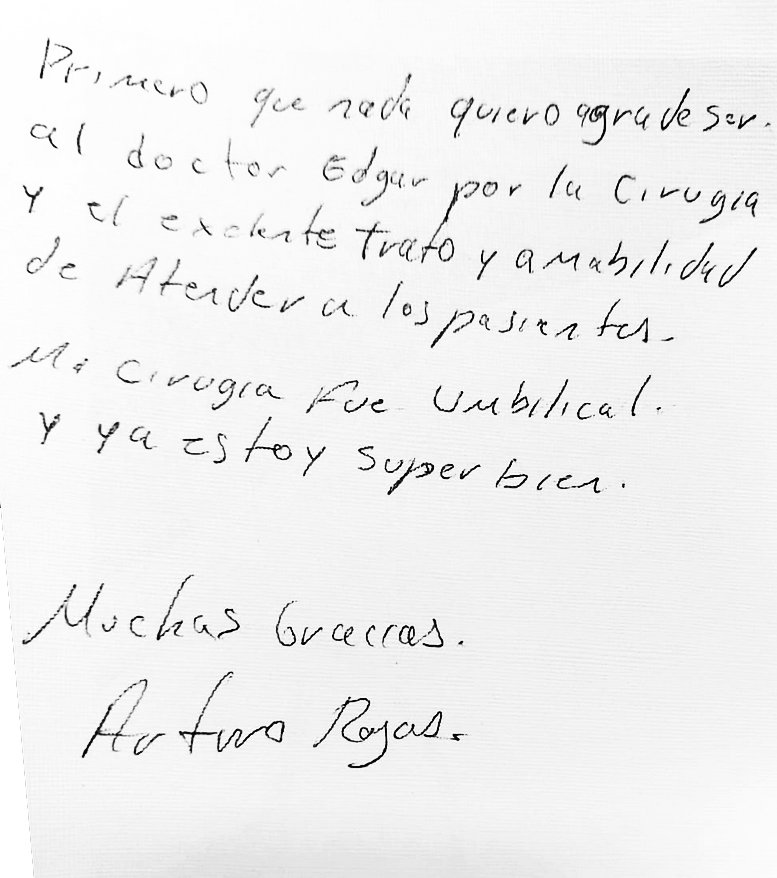 Primero que nada quiero agradeser.
al doctor Edgar por la Cirugia
y el exelente trato y amabilidad
de Atender a los pasientes.
Mi Cirugia Fue Umbilical.
y ya estoy super bien.
Muchas Gracias.
Arturo Rojas.